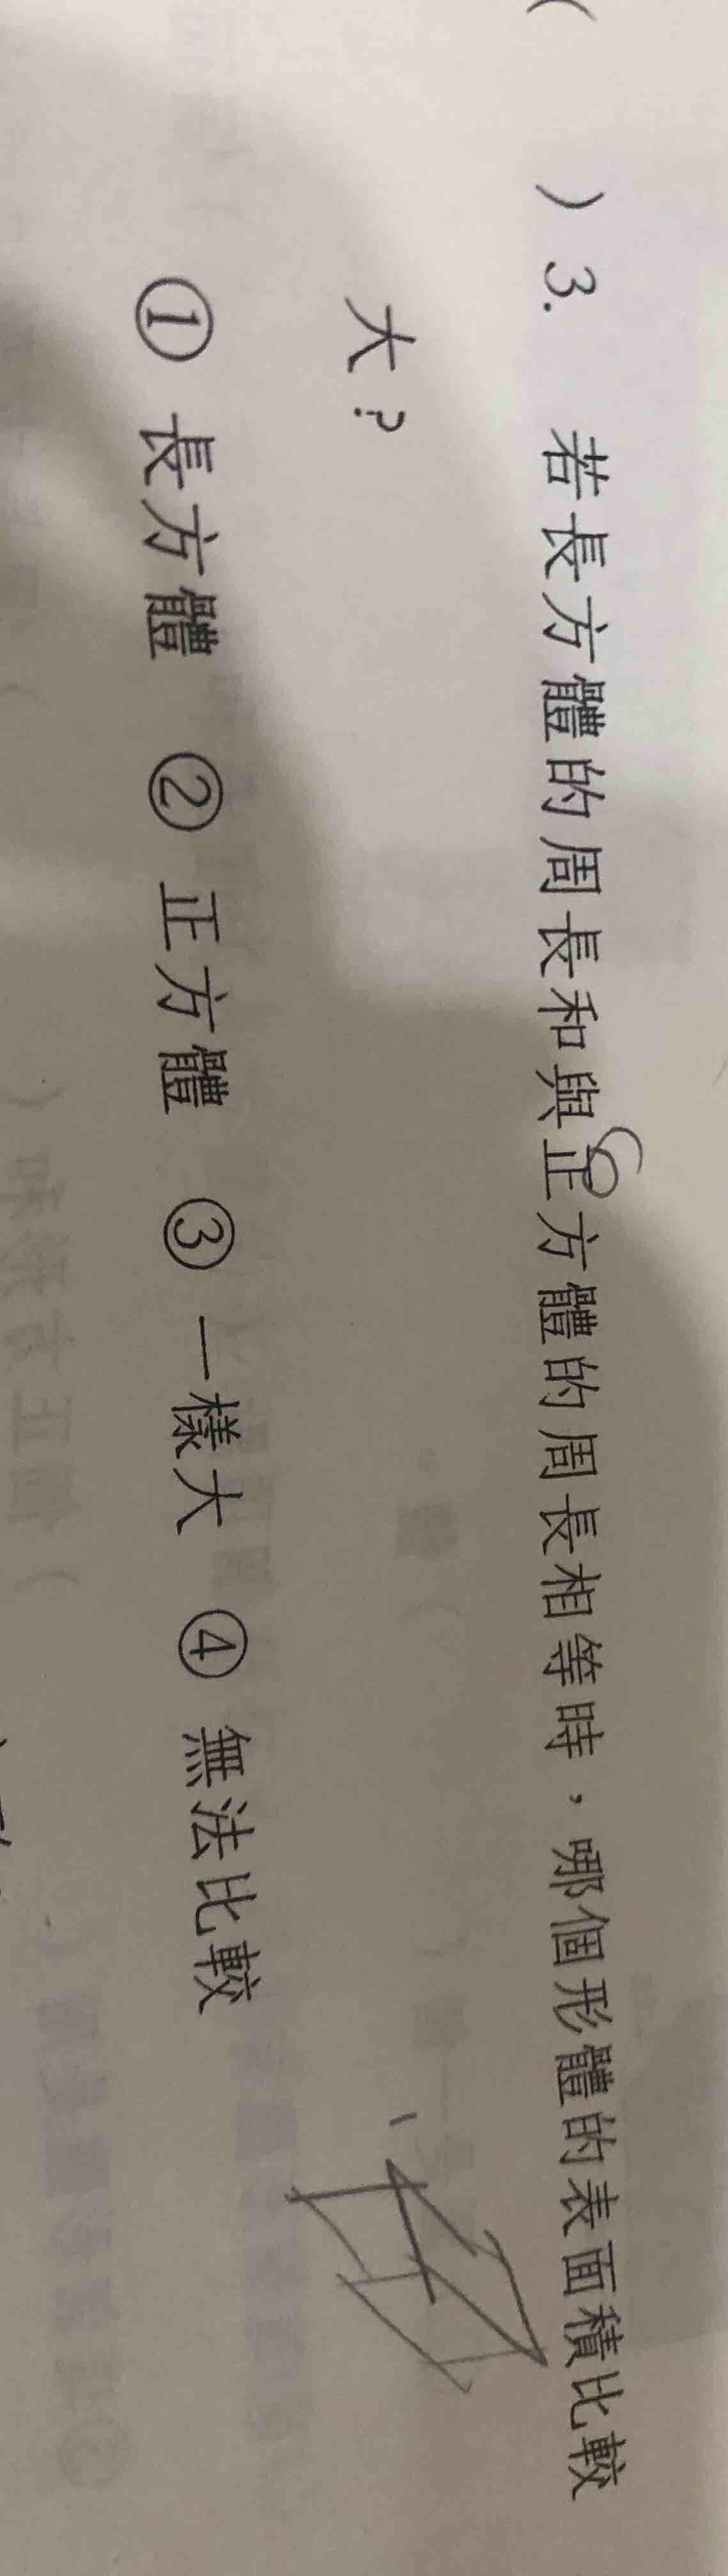 ( ) 3. 若長方體的周長和與正方體的周長相等時，哪個形體的表面積比較
大？
① 長方體 ② 正方體 ③ 一樣大 ④ 無法比較